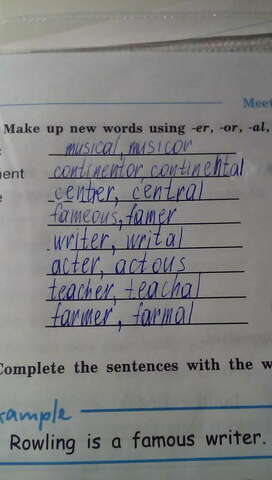 Meet
Make up new words using -er, -or, -al,
musical, musicor
nent continentor, continental
e center, central
fameous, famer
writer, writal
acter, actous
teacher, teachal
farmer, farmal
Complete the sentences with the w
xample
Rowling is a famous writer.